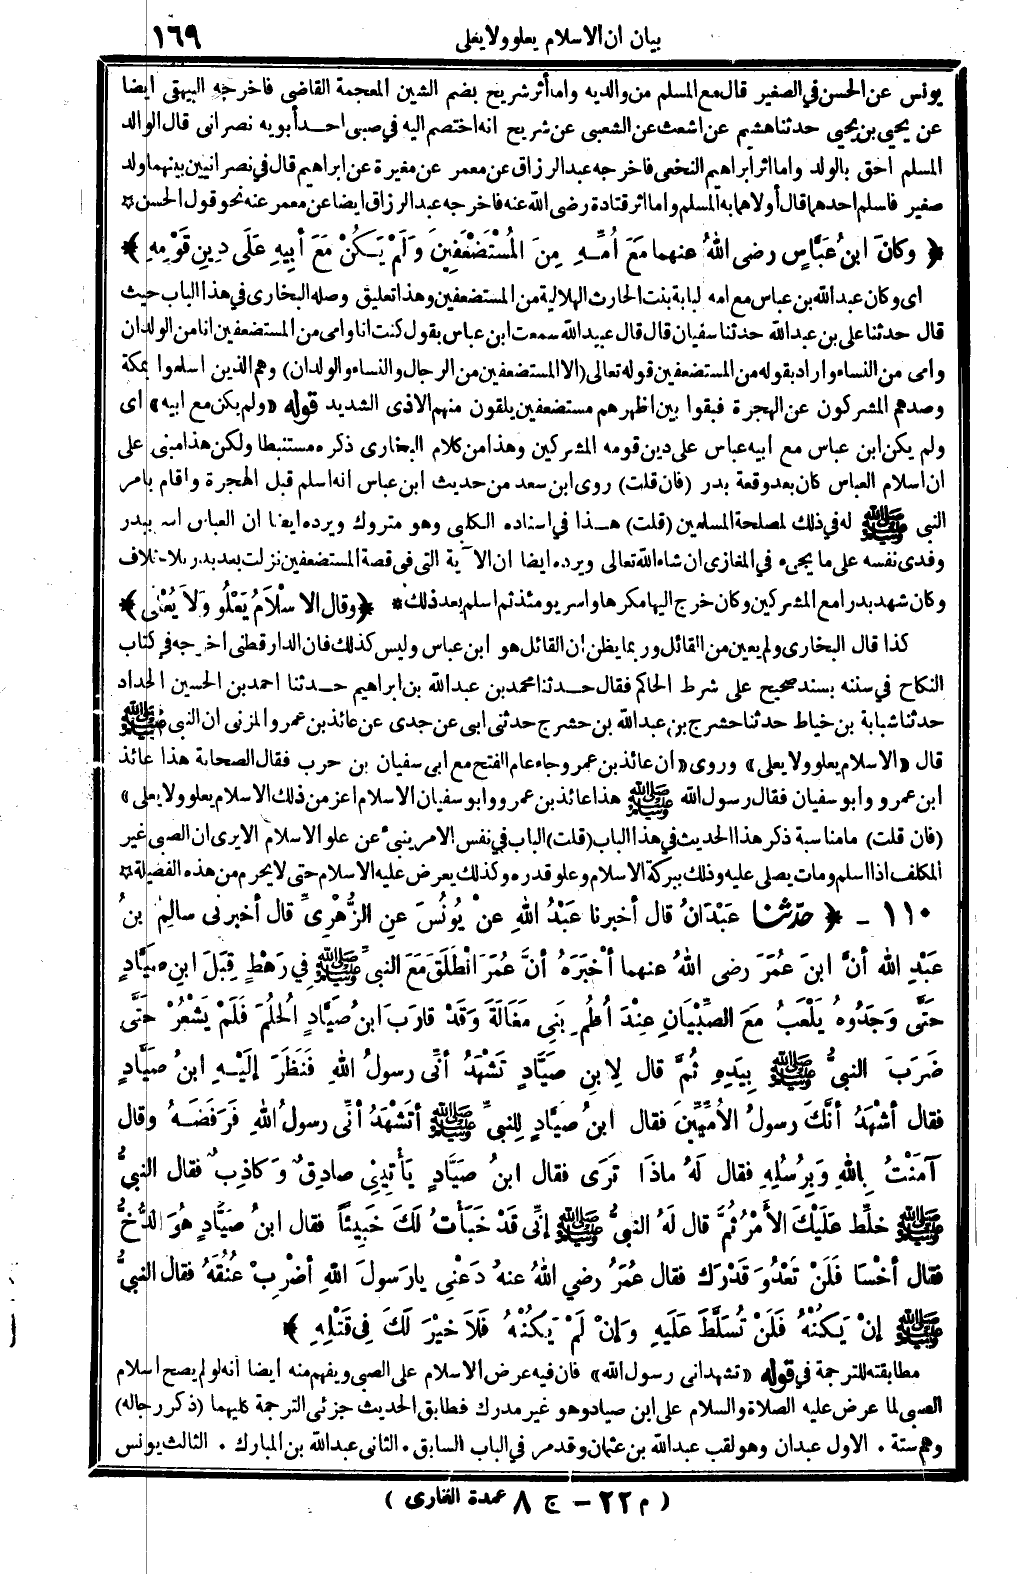 بيان ان الاسلام يعلو ولا يعلى ١٦٩
يونس عن الحسن في الصغير قال مع المسلم من والديه واما أثر شريح بضم الشين المعجمة القاضى فاخرجه البيهقى ايضا
عن يحيى بن يحيى حدثنا هشيم عن اشعث عن الشعبى عن شريح انه اختصم اليه في صبى احد أبويه نصرانى قال الوالد
المسلم احق بالولد واما اثر ابراهيم النخعى فاخرجه عبد الرزاق عن معمر عن مغيرة عن ابراهيم قال في نصرانيين بينهما ولد
صغير فاسلم احدهما قال أولاهما به المسلم واما اثر قتادة رضى الله عنه فاخرجه عبد الرزاق ايضا عن معمر عنه نحو قول الحسن *
﴿ وكانَ ابنُ عَبَّاسٍ رضى اللهُ عنهما مَعَ أُمِّهِ مِنَ المُسْتَضْعَفِينَ وَلَمْ يَكُنْ مَعَ أبِيهِ عَلَى دِينِ قَوْمِهِ ﴾
اى وكان عبد الله بن عباس مع امه لبابة بنت الحارث الهلالية من المستضعفين وهذا تعليق وصله البخارى في هذا الباب حيث
قال حدثنا على بن عبد الله حدثنا سفيان قال قال عبيد الله سمعت ابن عباس يقول كنت انا وامى من المستضعفين انا من الولدان
وامى من النساء واراد بقوله من المستضعفين قوله تعالى (الا المستضعفين من الرجال والنساء والولدان) وهم الذين اسلموا بمكة
وصدهم المشركون عن الهجرة فبقوا بين اظهرهم مستضعفين يلقون منهم الاذى الشديد قوله «ولم يكن مع ابيه» اى
ولم يكن ابن عباس مع ابيه عباس على دين قومه المشركين وهذا من كلام البخارى ذكره مستنبطا ولكن هذا مبنى على
ان اسلام العباس كان بعد وقعة بدر (فان قلت) روى ابن سعد من حديث ابن عباس انه اسلم قبل الهجرة واقام بامر
النبى ﷺ له في ذلك لمصلحة المسلمين (قلت) هذا في اسناده الكلبى وهو متروك ويرده ايضا ان العباس اسر ببدر
وفدى نفسه على ما يجىء في المغازى ان شاء الله تعالى ويرده ايضا ان الآية التى في قصة المستضعفين نزلت بعد بدر بلا خلاف
وكان شهد بدرا مع المشركين وكان خرج اليها مكرها واسر يومئذ ثم اسلم بعد ذلك * ﴿ وقال الاسْلَامُ يَعْلُو وَلَا يُعْلَى ﴾
كذا قال البخارى ولم يعين من القائل وربما يظن ان القائل هو ابن عباس وليس كذلك فان الدارقطنى اخرجه في كتاب
النكاح في سننه بسند صحيح على شرط الحاكم فقال حدثنا محمد بن عبد الله بن ابراهيم حدثنا احمد بن الحسين الحداد
حدثنا شبابة بن خياط حدثنا حشرج بن عبد الله بن حشرج حدثنى ابى عن جدى عن عائذ بن عمرو المزنى ان النبى ﷺ
قال «الاسلام يعلو ولا يعلى» وروى «ان عائذ بن عمرو جاء عام الفتح مع ابى سفيان بن حرب فقال الصحابة هذا عائذ
ابن عمرو وابو سفيان فقال رسول الله ﷺ هذا عائذ بن عمرو وابو سفيان الاسلام اعز من ذلك الاسلام يعلو ولا يعلى»
(فان قلت) ما مناسبة ذكر هذا الحديث في هذا الباب (قلت) الباب في نفس الامر ينبئ عن علو الاسلام الا يرى ان الصبى غير
المكلف اذا اسلم ومات يصلى عليه وذلك ببركة الاسلام وعلو قدره وكذلك يعرض عليه الاسلام حتى لا يحرم من هذه الفضيلة *
١١٠ - ﴿ حدثنا عَبْدَانُ قال أخبرنا عَبْدُ اللهِ عنْ يُونُسَ عنِ الزُّهْرِىِّ قال أخبرنى سالِمُ بنُ
عَبْدِ الله أنَّ ابنَ عُمَرَ رضى اللهُ عنهما أخْبَرَهُ أنَّ عُمَرَ انْطَلَقَ مَعَ النبىِّ ﷺ فِي رَهْطٍ قِبَلَ ابنِ صَيَّادٍ
حتَّى وَجَدُوهُ يَلْعَبُ مَعَ الصِّبْيَانِ عِنْدَ أُطُمِ بَنِى مَغَالَةَ وَقَدْ قارَبَ ابنُ صَيَّادٍ الحُلُمَ فَلَمْ يَشْعُرْ حَتَّى
ضَرَبَ النبىُّ ﷺ بِيَدِهِ ثُمَّ قال لِابنِ صَيَّادٍ تَشْهَدُ أنِّى رسولُ اللهِ فَنَظَرَ إلَيْهِ ابنُ صَيَّادٍ
فقال أشْهَدُ أنَّكَ رسولُ الأُمِّيِّينَ فقال ابنُ صَيَّادٍ لِلنبىِّ ﷺ أتَشْهَدُ أنِّى رسولُ اللهِ فَرَفَضَهُ وقال
آمَنْتُ بِاللهِ وَبِرُسُلِهِ فقال لَهُ ماذَا تَرَى فقال ابنُ صَيَّادٍ يَأْتِينِى صادِقٌ وَكاذِبٌ فقال النبىُّ
ﷺ خلِّطَ عَلَيْكَ الأمْرُ ثُمَّ قال لَهُ النبىُّ ﷺ إنِّى قَدْ خَبَأْتُ لَكَ خَبِيئًا فقال ابنُ صَيَّادٍ هُوَ الدُّخُّ
فقال أخْسَا فَلَنْ تَعْدُوَ قَدْرَكَ فقال عُمَرُ رضي اللهُ عنهُ دَعْنِى يا رَسولَ اللهِ أضْرِبْ عُنُقَهُ فقال النبىُّ
ﷺ إنْ يَكُنْهُ فَلَنْ تُسَلَّطَ عَلَيهِ وَإنْ لَمْ يَكُنْهُ فَلاَ خيْرَ لَكَ فِى قَتْلِهِ ﴾
مطابقته للترجمة في قوله «تشهد انى رسول الله» فان فيه عرض الاسلام على الصبى ويفهم منه ايضا أنه لو لم يصح اسلام
الصبى لما عرض عليه الصلاة والسلام على ابن صياد وهو غير مدرك فطابق الحديث جزئى الترجمة كليهما (ذكر رجاله)
وهم ستة . الاول عبدان وهو لقب عبد الله بن عثمان وقد مر في الباب السابق . الثانى عبد الله بن المبارك . الثالث يونس
( م ٢٢ - ج ٨ عمدة القارى )